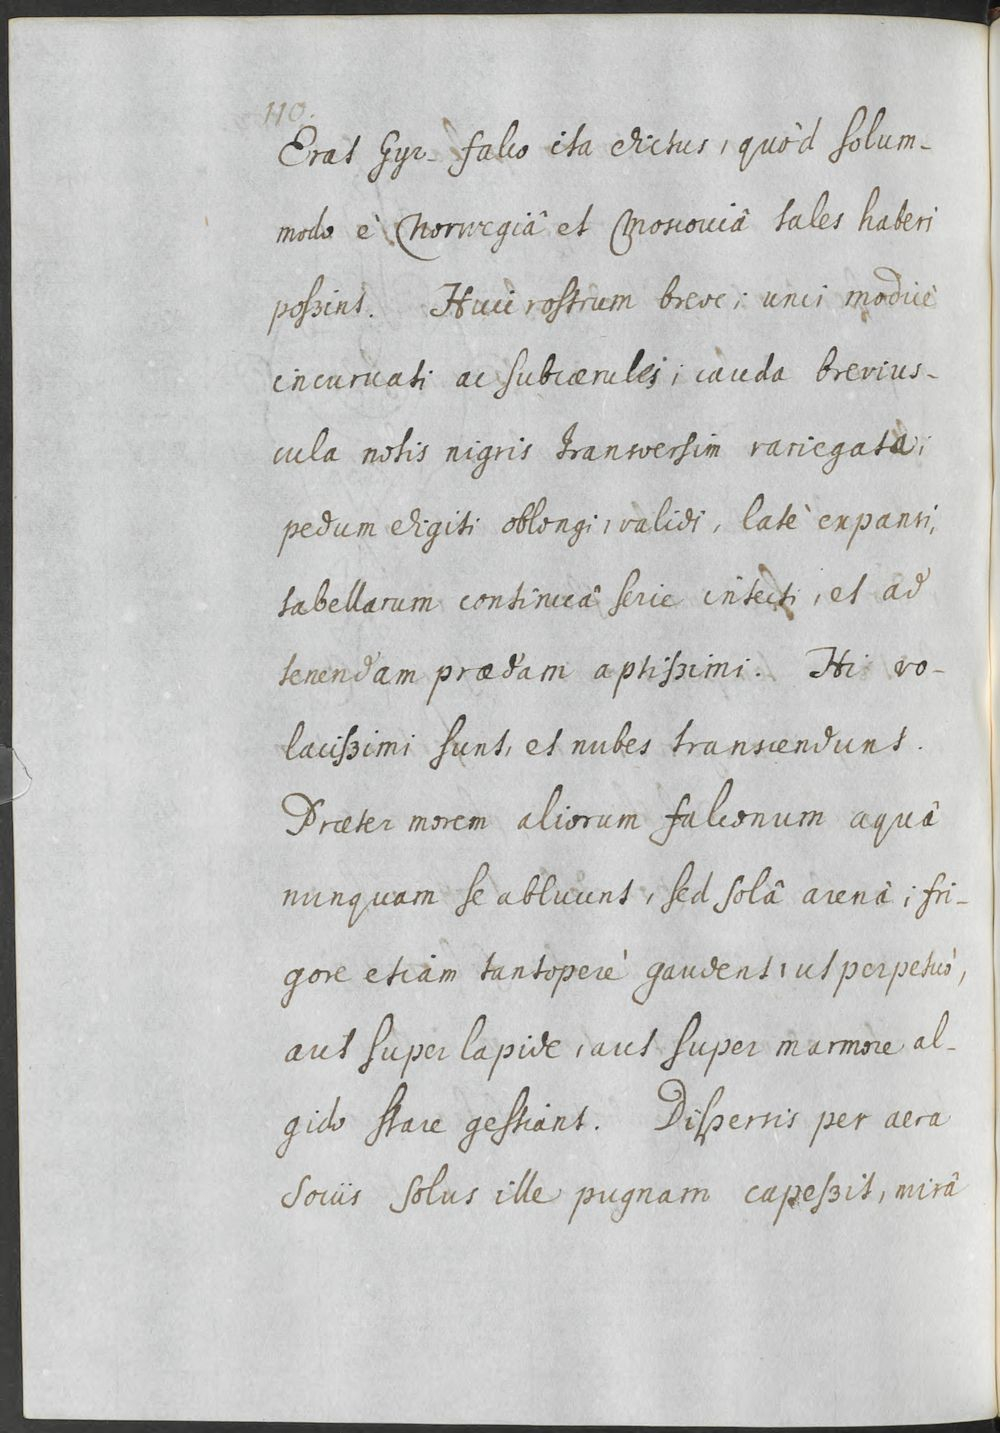 110.
Erat Gyr-falco ita dictus, quòd solum-
modo è Norwegiâ et Moscoviâ tales haberi
possint. Huic rostrum breve; unci modicè
incurvati ac subcærulei; cauda brevius-
cula notis nigris transversim variegata;
pedum digiti oblongi, validi, latè expansi,
tabellarum continuâ serie intecti, et ad
tenendam prædam aptissimi. Hi vo-
lacissimi sunt, et nubes transcendunt.
Præter morem aliorum falconum aquâ
nunquam se abluunt, sed solâ arenâ; fri-
gore etiam tantoperè gaudent, ut perpetuò,
aut super lapide, aut super marmore al-
gido stare gestiant. Dispersis per aera
sociis solus ille pugnam capessit, mirâ